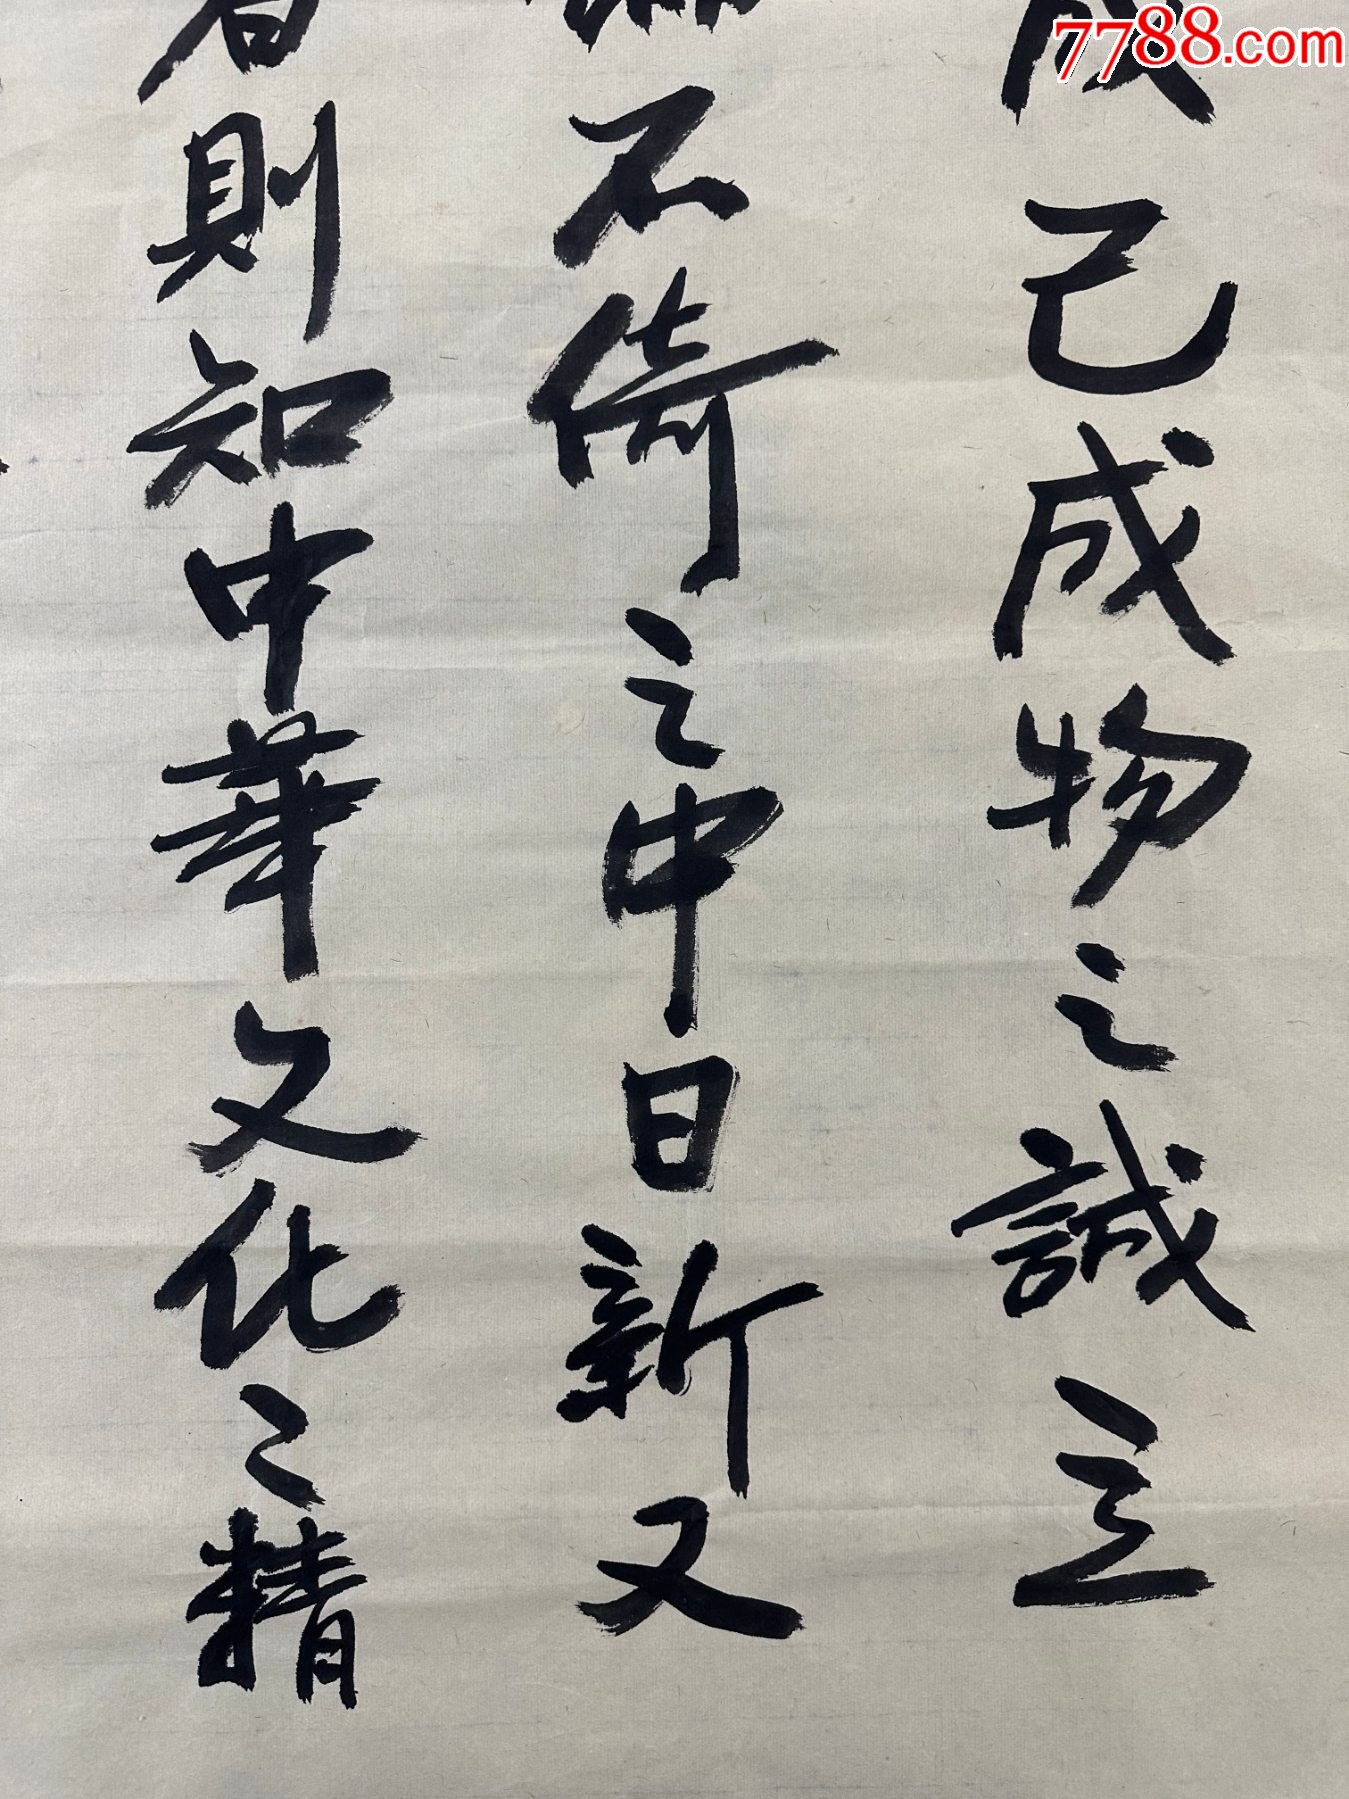 7788.com
成己成物之誠立
不倚之中日新又
者則知中華文化之精